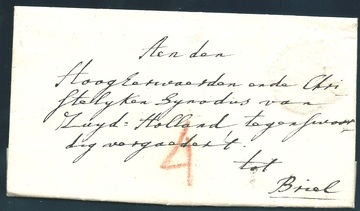 Aen den
HoogEerwaerden ende Chri
stelyken Synodus van
Zuyd=Holland tegenswoor
dig vergaedert.
4
tot
Briel